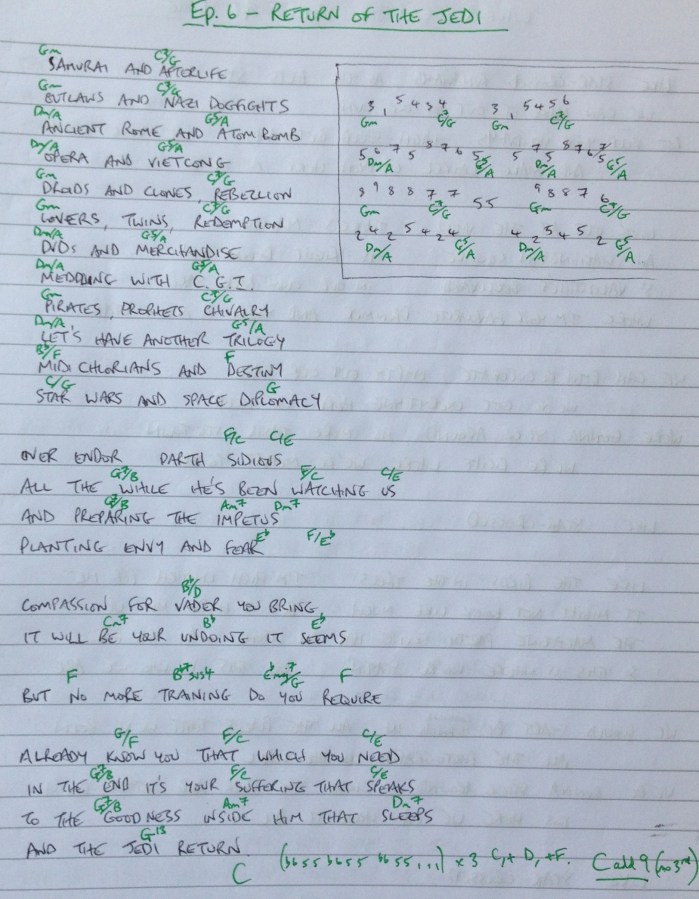 Ep. 6 – RETURN OF THE JEDI
Gm C7/G
SAMURAI AND AFTERLIFE
Gm C7/G
OUTLAWS AND NAZI DOGFIGHTS
Dm/A G5/A
ANCIENT ROME AND ATOM BOMB
Dm/A G5/A
OPERA AND VIETCONG
Gm C7/G
DROIDS AND CLONES, REBELLION
Gm C7/G
LOVERS, TWINS, REDEMPTION
Dm/A G5/A
DVDS AND MERCHANDISE
Dm/A G5/A
MEDDLING WITH C.G.I.
Gm C7/G
PIRATES, PROPHETS CHIVALRY
Dm/A G5/A
LET'S HAVE ANOTHER TRILOGY
Bb/F F
MIDI CHLORIANS AND DESTINY
C/G G
STAR WARS AND SPACE DIPLOMACY
3, 5 4 3 4 3, 5 4 5 6
Gm C7/G Gm C7/G
5 6 7 5 8 7 6 5 5 7 5 8 7 6 5
Dm/A G5/A Dm/A G5/A
9 8 8 7 7 5 5 9 8 8 7 6
Gm C7/G Gm C7/G
2 4 2 5 4 2 4 4 2 5 4 5 2
Dm/A G5/A Dm/A G5/A
F/C C/E
OVER ENDOR DARTH SIDIOUS
G7/B F/C C/E
ALL THE WHILE HE'S BEEN WATCHING US
G7/B Am7 Dm7
AND PREPARING THE IMPETUS
Eb F/Eb
PLANTING ENVY AND FEAR
Bb/D
COMPASSION FOR VADER YOU BRING
Cm7 Bb Eb
IT WILL BE YOUR UNDOING IT SEEMS
F Bb7sus4 Ebmaj7/G F
BUT NO MORE TRAINING DO YOU REQUIRE
G/F F/C C/E
ALREADY KNOW YOU THAT WHICH YOU NEED
G7/B F/C C/E
IN THE END IT'S YOUR SUFFERING THAT SPEAKS
G7/B Am7 Dm7
TO THE GOODNESS INSIDE HIM THAT SLEEPS
G13
AND THE JEDI RETURN
C (b655 b655 b655...) x3 C, + D, + F. Cadd9 (no 3rd)